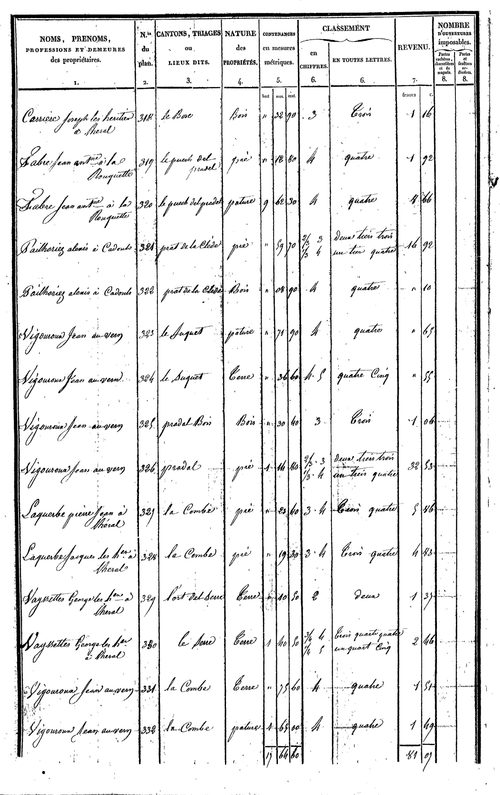 NOMS, PRENOMS, PROFESSIONS ET DEMEURES des propriétaires. | N.os du plan. | CANTONS, TRIAGES ou LIEUX DITS. | NATURE des PROPRIÉTÉS. | CONTENANCES en mesures métriques. | CLASSEMENT en CHIFFRES. | EN TOUTES LETTRES. | REVENU. | NOMBRE D'OUVERTURES imposables.
1. | 2. | 3. | 4. | 5. | 6. | 6. | 7. | 8. | 8.
Carriere Joseph les heritiers à Cheral | 318 | le Bore | Bois | " 32 90 | 3 | Trois | 1 16
Fabre Jean ant.ne à la Rouquette | 319 | le puech del pradel | pré | " 12 80 | 4 | quatre | 1 92
Fabre Jean ant.ne à la Rouquette | 320 | le puech del pradel | pature | 9 62 30 | 4 | quatre | 66
alexis à Cadouls | 321 | prat de la Clède | pré | " 59 70 | 2/3 3 1/3 4 | deux tiers trois un tier quatre | 16 92
alexis à Cadouls | 322 | prat de la Clède | Bois | " 08 90 | 4 | quatre | " 10
Vigouroux Jean au vern | 323 | le Suquet | pature | " 71 90 | 4 | quatre | " 65
Vigouroux Jean au vern | 324 | le Suquet | Terre | " 36 60 | 4. 5 | quatre Cinq | " 55
Vigouroux Jean au vern | 325 | pradal Bois | Bois | " 30 60 | 3 | Trois | 1 06
Vigouroux Jean au vern | 326 | pradal | pré | 1 16 80 | 2/3. 3 1/3. 4 | deux tiers trois un tiers quatre | 32 53
Laquerbe pierre Jean à Cheral | 327 | la Combe | pré | " 23 60 | 3. 4 | Trois quatre | 5 46
Laquerbe Jacques les h.ers à Cheral | 328 | la Combe | pré | " 19 30 | 3. 4 | Trois quatre | 4 43
Vayssettes George les h.ers à Cheral | 329 | l'ort del serre | Terre | " 10 50 | 2 | deux | 1 37
Vayssettes George les h.ers à Cheral | 330 | le serre | Terre | 1 40 50 | 3/4 4 1/4 5 | trois quart quatre un quart Cinq | 2 46
Vigouroux Jean au vern | 331 | la Combe | Terre | " 75 60 | 4 | quatre | 1 51
Vigouroux Jean au vern | 332 | la Combe | pature | 4 65 00 | 4 | quatre | 1 69
17 66 60 | 81 07